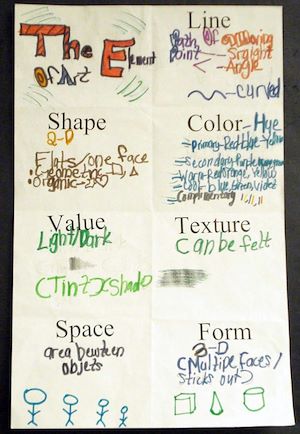 The Element
Of Art
Line
Path Of a moving
Point
Straight
Angle
curved
Shape
2-D
Flats/one face
Geometric
organic
Color-Hue
primary-Red Blue Yellow
secondary-Purple
Warm-Red orange, Yellow
Cool-blue, Green, Violet
Complimentary
Value
Light/Dark
(Tint)(shade)
Texture
Can be felt
Space
area bewteen
objets
Form
3-D
(Multiple faces/
sticks out)